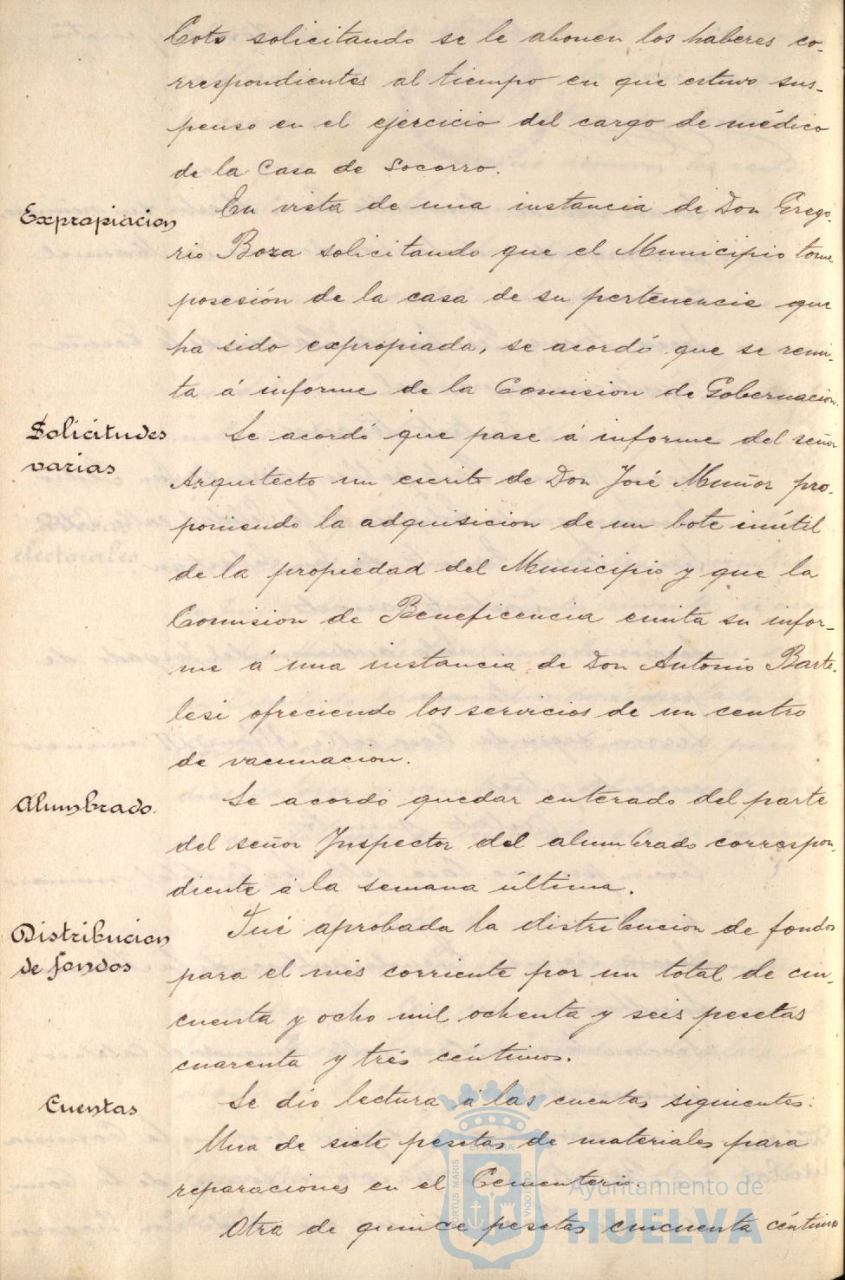 Coto solicitando se le abonen los haberes co-
rrespondientes al tiempo en que estuvo sus-
penso en el ejercicio del cargo de médico
de la Casa de Socorro.
Expropiacion
En vista de una instancia de Don Grego-
rio Boza solicitando que el Municipio tome
posesión de la casa de su pertenencia que
ha sido expropiada, se acordó que se remi-
ta á informe de la Comision de Gobernacion.
Solicitudes
varias
Se acordó que pase á informe del señor
Arquitecto un escrito de Don José Muñoz pro-
poniendo la adquisicion de un bote inútil
de la propiedad del Municipio y que la
Comision de Beneficencia emita su infor-
me á una instancia de Don Antonio Barte-
lesi ofreciendo los servicios de un centro
de vacunacion.
Alumbrado.
Se acordó quedar enterado del parte
del señor Inspector del alumbrado correspon-
diente á la semana última.
Distribucion
de fondos
Fué aprobada la distribucion de fondos
para el més corriente por un total de cin-
cuenta y ocho mil ochenta y seis pesetas
cuarenta y trés céntimos.
Cuentas
Se dió lectura á las cuentas siguientes:
Una de siete pesetas de materiales para
reparaciones en el Cementerio.
Otra de quince pesetas cincuenta céntimos
Ayuntamiento de
HUELVA